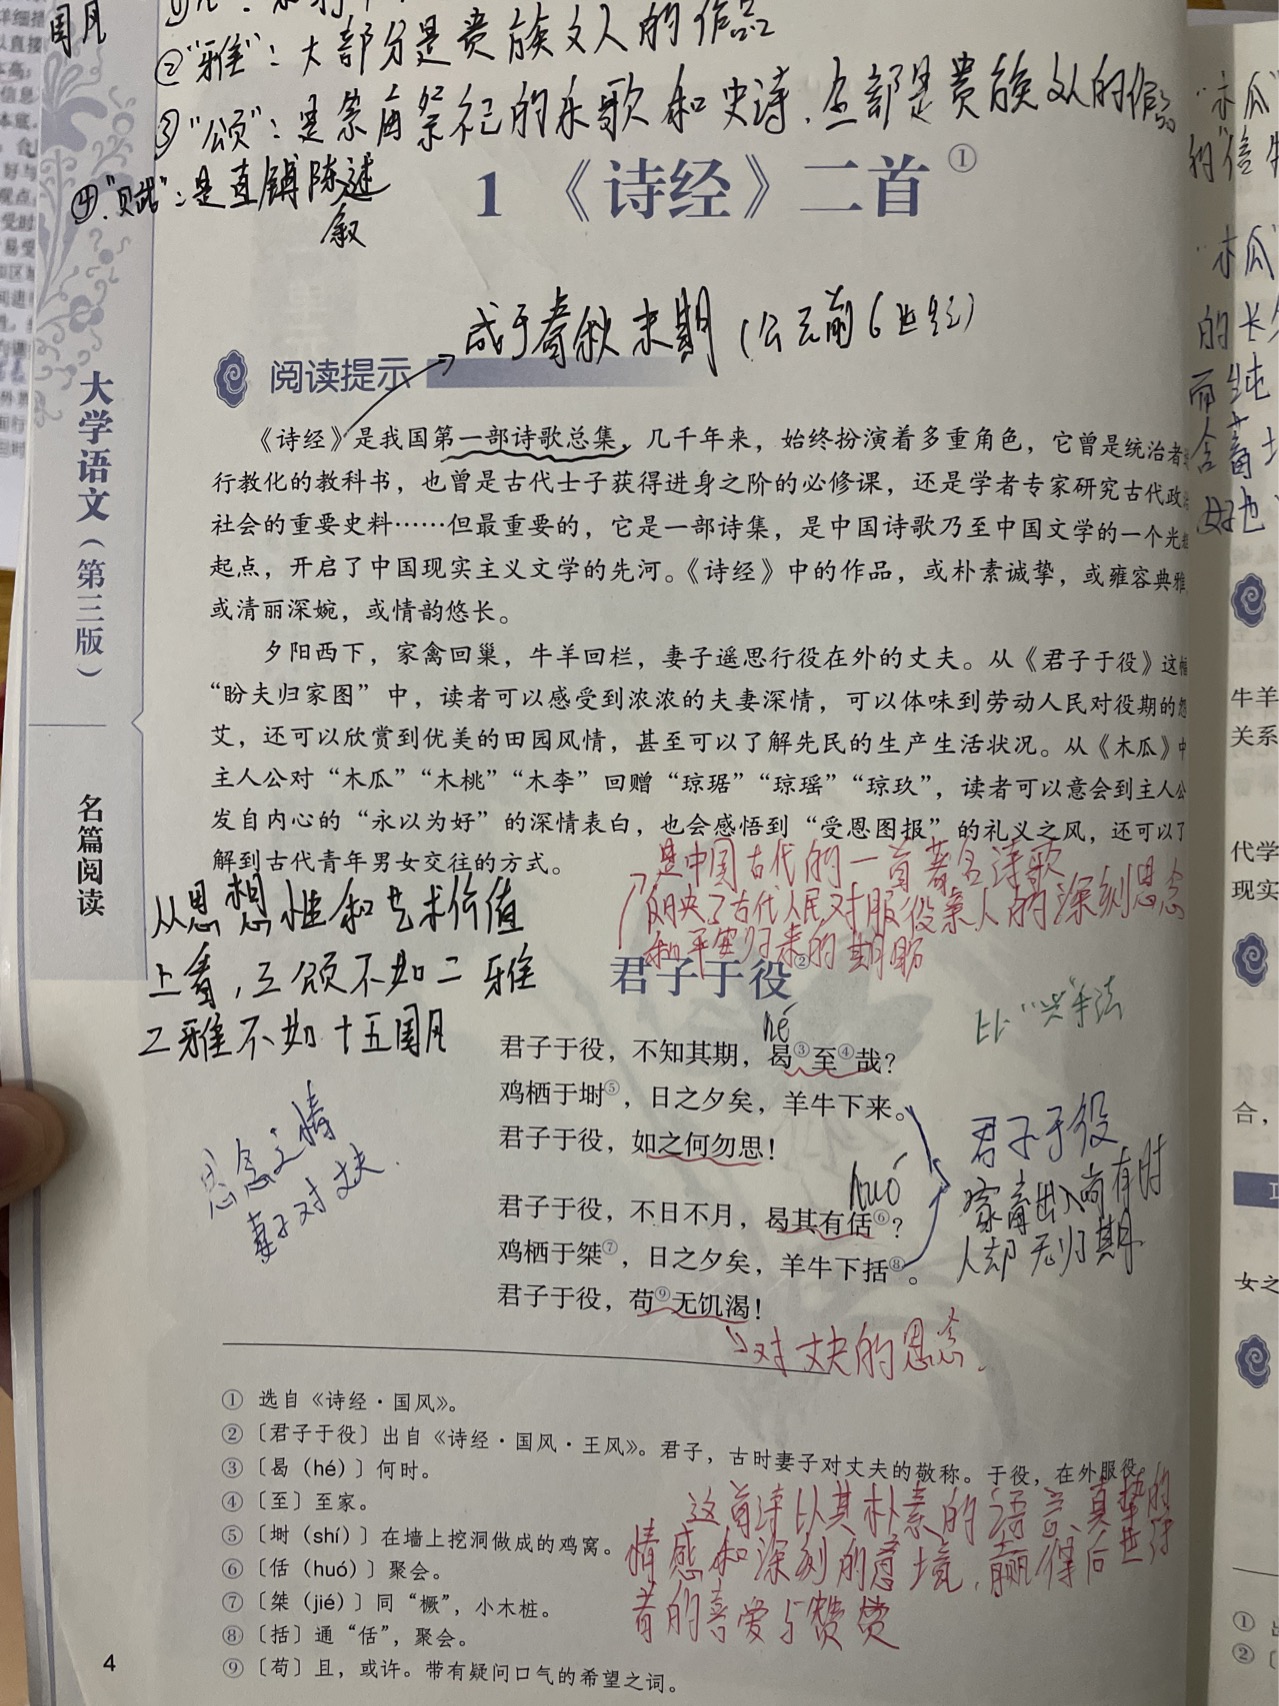 国风
②"雅"：大部分是贵族文人的作品
③"颂"：是宗庙祭祀的乐歌和史诗，全部是贵族文人的作品
④"赋"：是直铺陈述
叙
1 《诗经》二首①
成于春秋末期（公元前6世纪）
阅读提示
《诗经》是我国第一部诗歌总集，几千年来，始终扮演着多重角色，它曾是统治者
行教化的教科书，也曾是古代士子获得进身之阶的必修课，还是学者专家研究古代政
社会的重要史料……但最重要的，它是一部诗集，是中国诗歌乃至中国文学的一个光
起点，开启了中国现实主义文学的先河。《诗经》中的作品，或朴素诚挚，或雍容典雅
或清丽深婉，或情韵悠长。
夕阳西下，家禽回巢，牛羊回栏，妻子遥思行役在外的丈夫。从《君子于役》这幅
“盼夫归家图”中，读者可以感受到浓浓的夫妻深情，可以体味到劳动人民对役期的怨
艾，还可以欣赏到优美的田园风情，甚至可以了解先民的生产生活状况。从《木瓜》中
主人公对“木瓜”“木桃”“木李”回赠“琼琚”“琼瑶”“琼玖”，读者可以意会到主人公
发自内心的“永以为好”的深情表白，也会感悟到“受恩图报”的礼义之风，还可以了
解到古代青年男女交往的方式。
是中国古代的一首著名诗歌
反映了古代人民对服役亲人的深刻思念
和平安归来的期盼
从思想性和艺术价值
上看，三颂不如二雅
二雅不如十五国风
君子于役②
比"兴"手法
hé
君子于役，不知其期，曷③至④哉？
鸡栖于埘⑤，日之夕矣，羊牛下来。
君子于役，如之何勿思！
huó
君子于役，不日不月，曷其有佸⑥？
鸡栖于桀⑦，日之夕矣，羊牛下括⑧。
君子于役，苟⑨无饥渴！
思念之情
妻子对丈夫
君子于役
家畜出入尚有时
人却无归期
对丈夫的思念
① 选自《诗经·国风》。
② 〔君子于役〕出自《诗经·国风·王风》。君子，古时妻子对丈夫的敬称。于役，在外服役。
③ 〔曷（hé）〕何时。
④ 〔至〕至家。
⑤ 〔埘（shí）〕在墙上挖洞做成的鸡窝。
⑥ 〔佸（huó）〕聚会。
⑦ 〔桀（jié）〕同“橛”，小木桩。
⑧ 〔括〕通“佸”，聚会。
⑨ 〔苟〕且，或许。带有疑问口气的希望之词。
这首诗以其朴素的语言、真挚的
情感和深刻的意境，赢得后世读
者的喜爱与赞赏
4
大学语文（第三版）
名篇阅读
"木瓜"
"木瓜"
的长
牛羊
关系
代学
现实
合，
女之
①
②